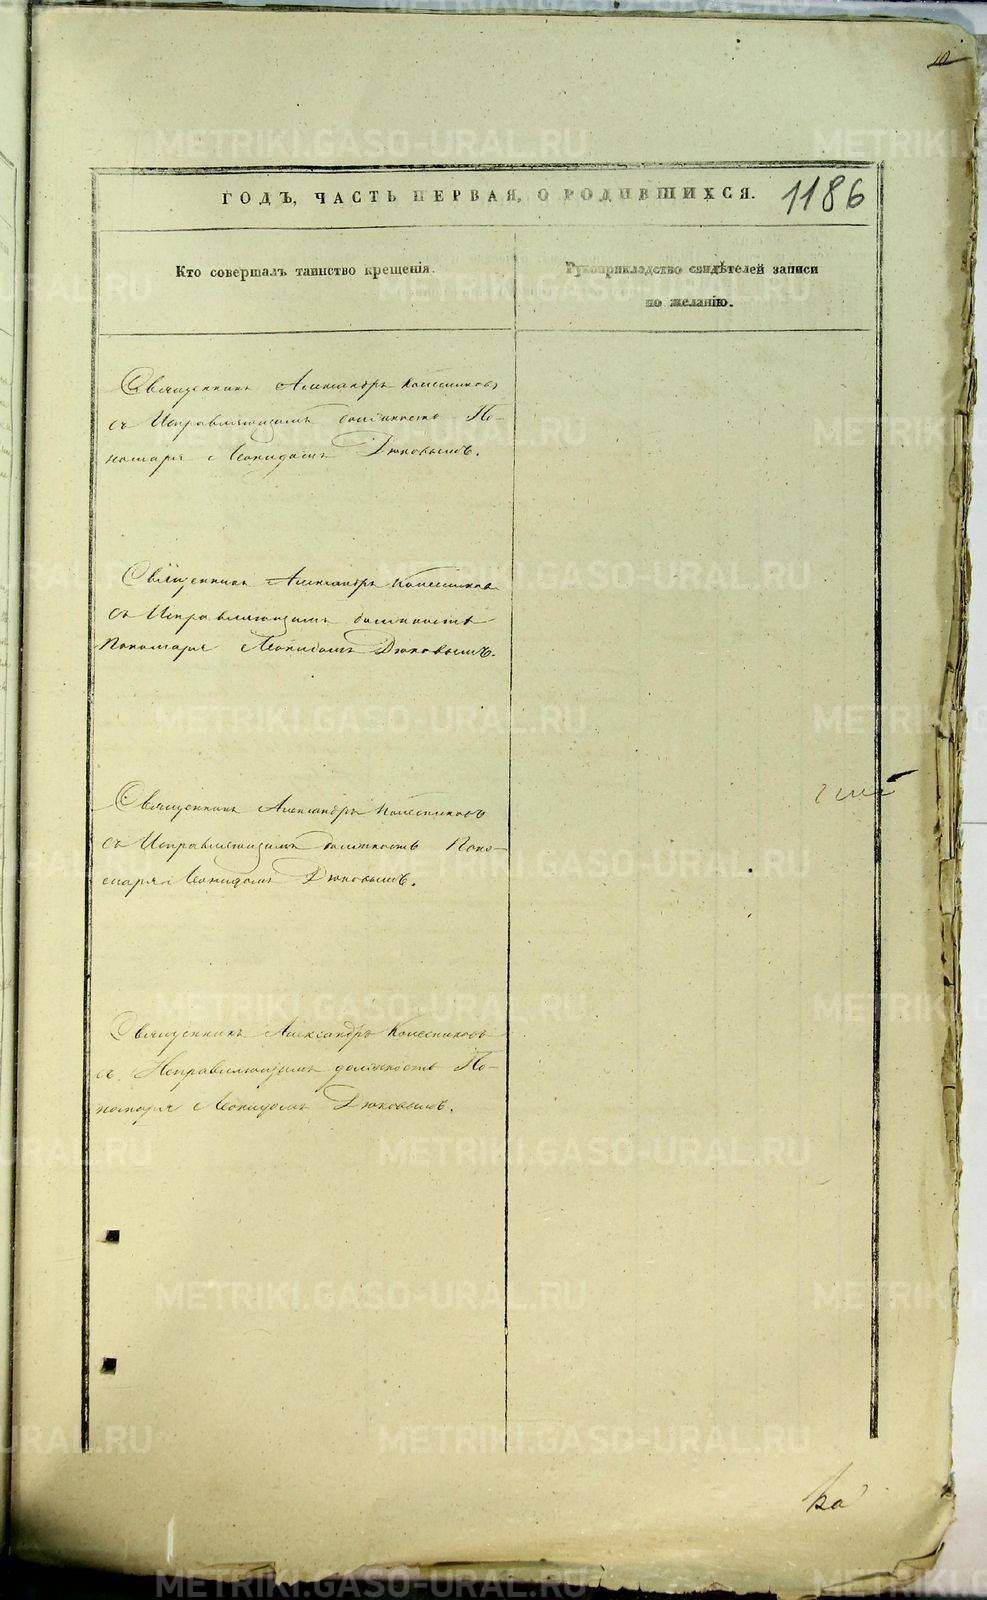 10
ГОДЪ, ЧАСТЬ ПЕРВАЯ, О РОДИВШИХСЯ. 1186
Кто совершалъ таинство крещенія.
Рукоприкладство свидѣтелей записи
по желанію.
Священникъ Александръ Колесниковъ
съ Исправляющимъ должность По-
номаря Леонидомъ Дюковымъ.
Священникъ Александръ Колесниковъ
съ Исправляющимъ должность
Пономаря Леонидомъ Дюковымъ.
Священникъ Александръ Колесниковъ
съ Исправляющимъ должность Поно-
маря Леонидомъ Дюковымъ.
Священникъ Александръ Колесниковъ
съ Исправляющимъ должность По-
номаря Леонидомъ Дюковымъ.
METRIKI.GASO-URAL.RU